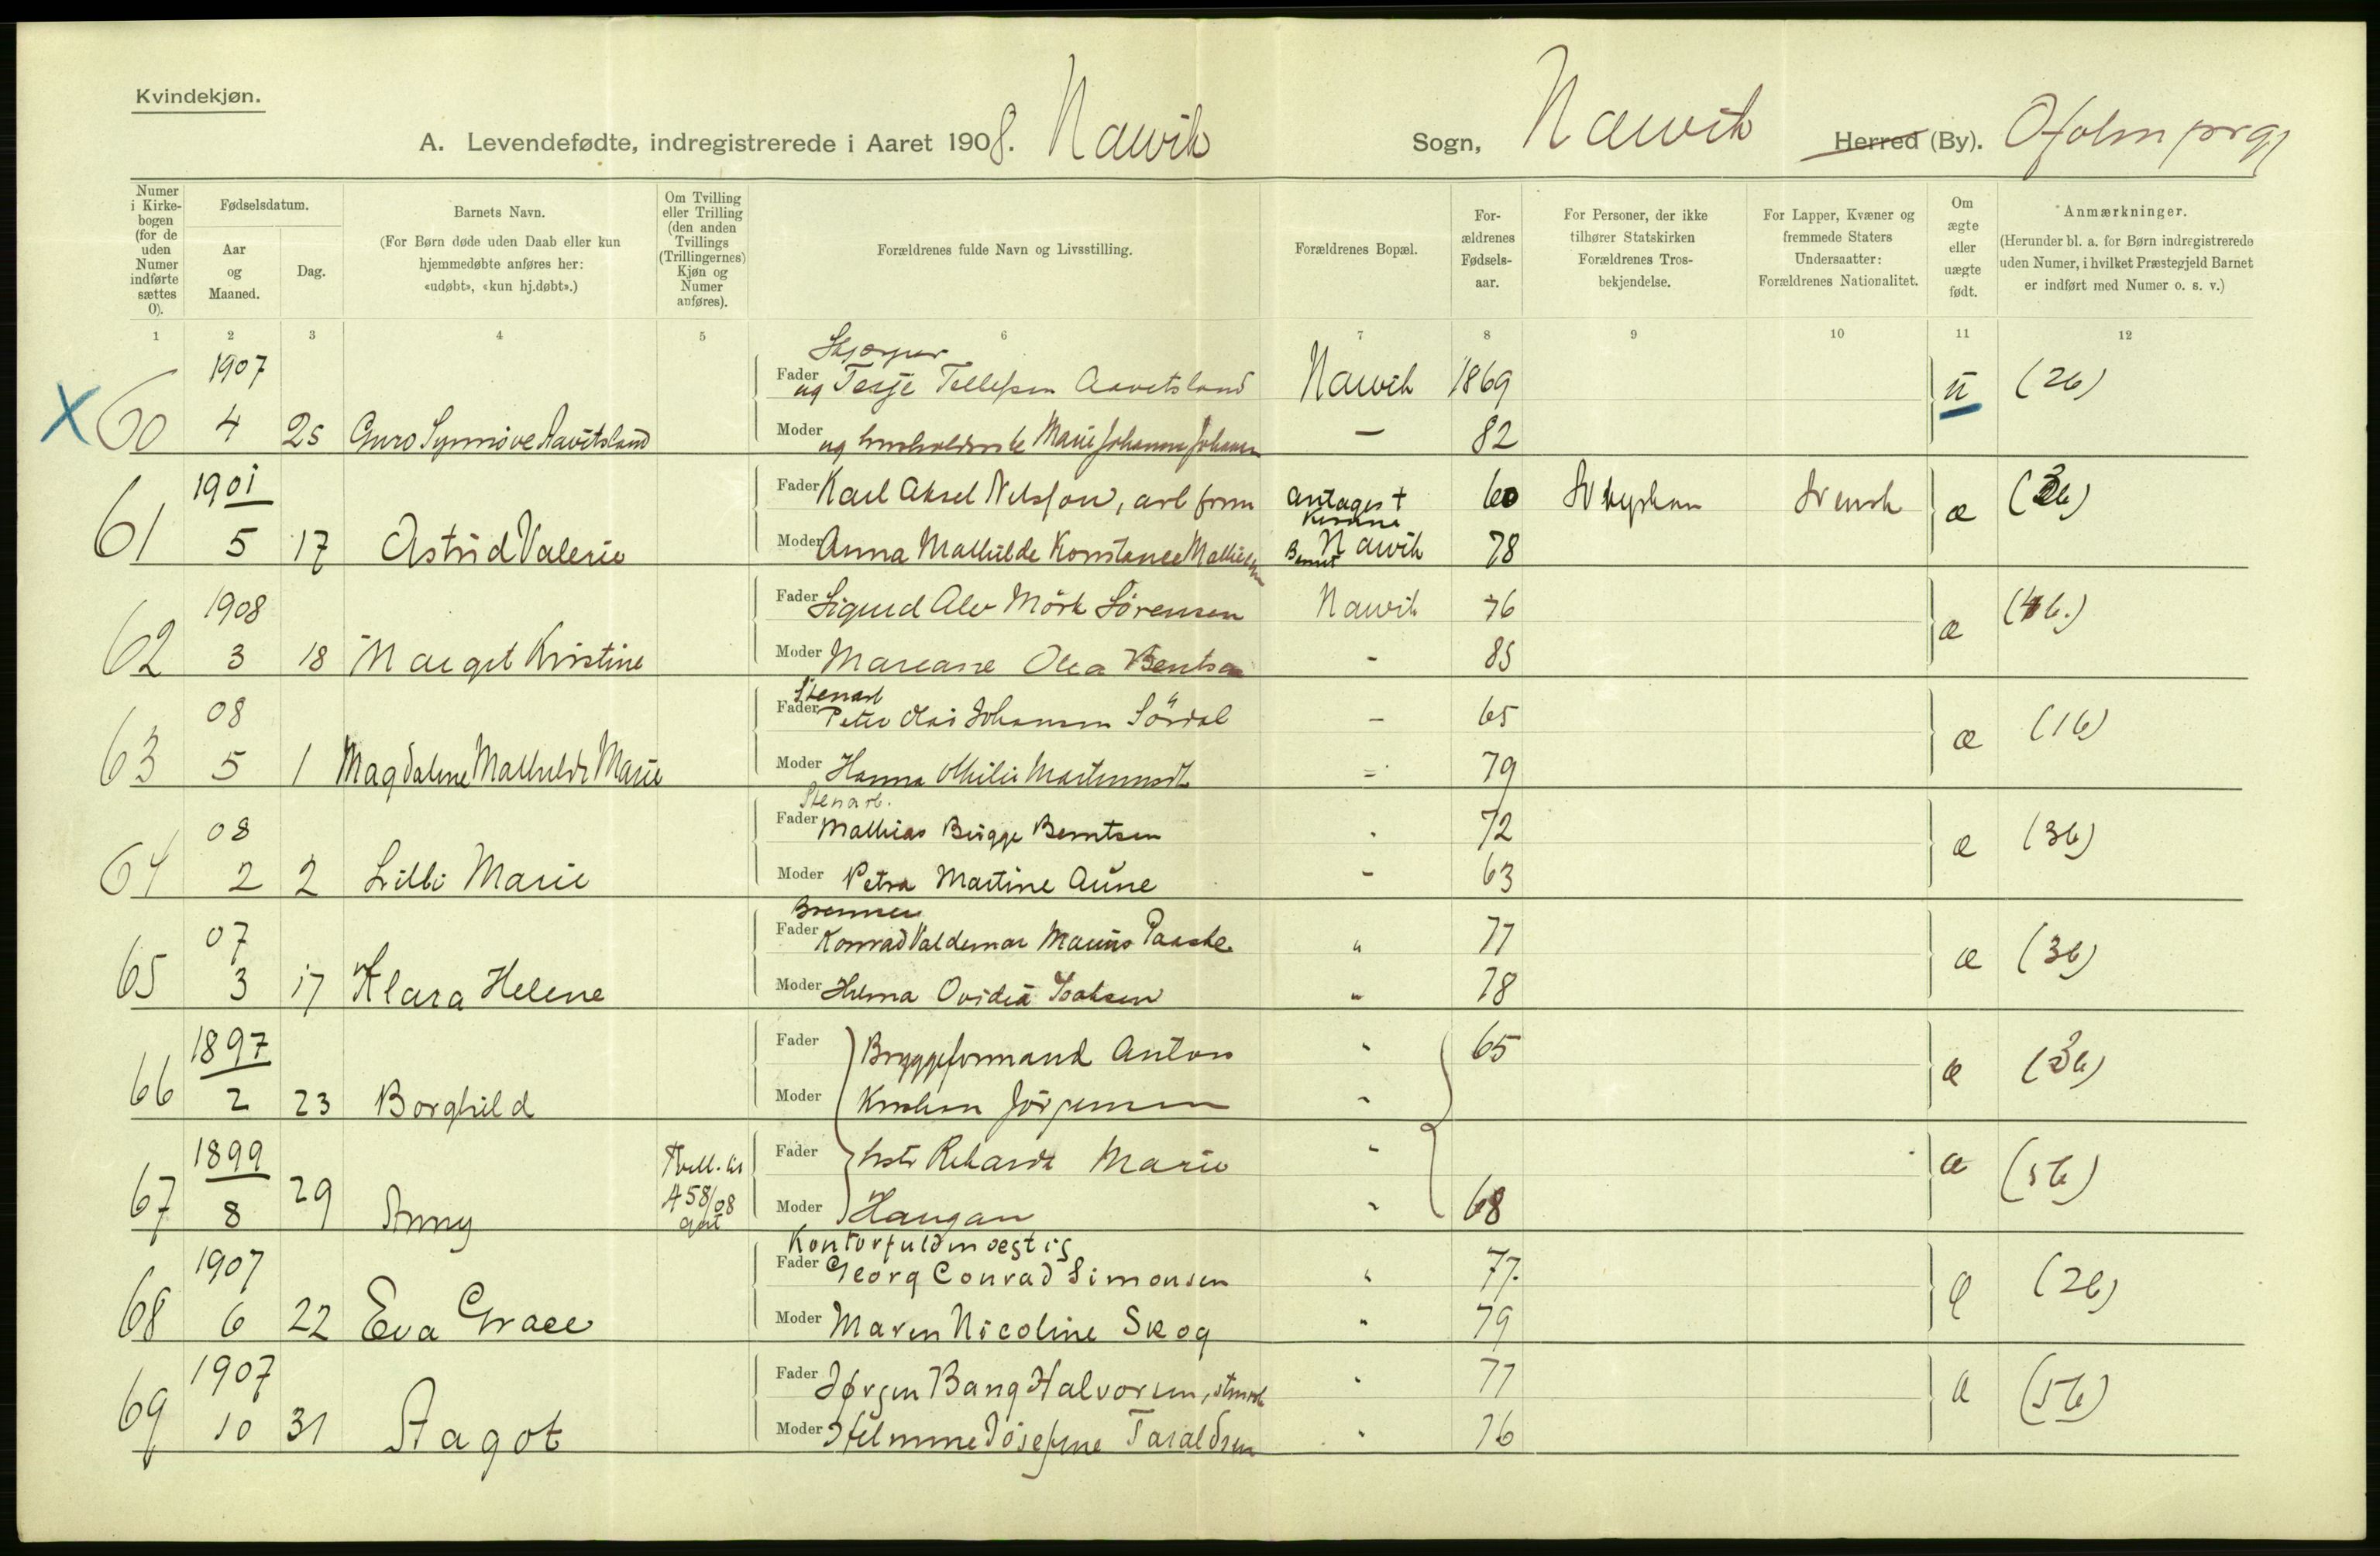 Kvindekjøn.
A. Levendefødte, indregistrerede i Aaret 1908. Narvik Sogn, Narvik Herred (By). Ofoten prgj
Numer i Kirkebogen (for de uden Numer indførte sættes 0).
Fødselsdatum.
Aar og Maaned.
Dag.
Barnets Navn.
(For Børn døde uden Daab eller kun hjemmedøbte anføres her: «udøbt», «kun hj.døbt».)
Om Tvilling eller Trilling (den anden Tvillings (Trillingernes) Kjøn og Numer anføres).
Forældrenes fulde Navn og Livsstilling.
Forældrenes Bopæl.
Forældrenes Fødselsaar.
For Personer, der ikke tilhører Statskirken Forældrenes Trosbekjendelse.
For Lapper, Kvæner og fremmede Staters Undersaatter: Forældrenes Nationalitet.
Om ægte eller uægte født.
Anmærkninger.
(Herunder bl. a. for Børn indregistrerede uden Numer, i hvilket Præstegjeld Barnet er indført med Numer o. s. v.)
1 2 3 4 5 6 7 8 9 10 11 12
X 60 1907 4 25 Guro Synnöve Aavitsland
Fader ug Terje Tellefsen Aavitsland Narvik 1869 ü (26)
Moder ug husholderske Marie Johanna Johansen — 82
61 1901 5 17 Astrid Valerie
Fader Karl Aksel Nilsson, arb form antages + Kiruna 60 Svensk æ
Moder Anna Mathilde Konstance Narvik 78
62 1908 3 18 Margit Kristine
Fader Sigurd Alv Mörk Sörensen Narvik 76 æ
Moder Mareane Olea Bentsen - 85
63 08 5 1 Magdalene Mathilde Marie
Stenarb
Fader Peter Olai Johansen Sördal - 65 æ (16)
Moder Hanna 79
64 08 2 2 Lilli Marie
Stenarb.
Fader Mathias Birger Berntsen 72 æ (36)
Moder Petra Martine Aune - 63
65 07 3 17 Klara Helene
Bremser
Fader Konrad Valdemar Marius Paaske " 77 æ (36)
Moder Hilma Ovidia Isaksen " 78
66 1897 2 23 Borghild
Fader Bryggeformand Anton " 65 æ
Moder Kristian Jörgensen "
67 1899 8 29 Anny Tvill. til A 58/08 gut
Fader hstr Rikarda Marie " æ (56)
Moder Haugan " 68
68 1907 6 22 Eva Grace
Kontorfuldmægtig
Fader Georg Conrad Simonsen " 77. (26)
Moder Maren Nicoline Skog " 79
69 1907 10 31 Aagot
Fader Jørgen Bang Halvorsen, stenarb " 77 æ (56)
Moder Josefine Taraldsen " 76